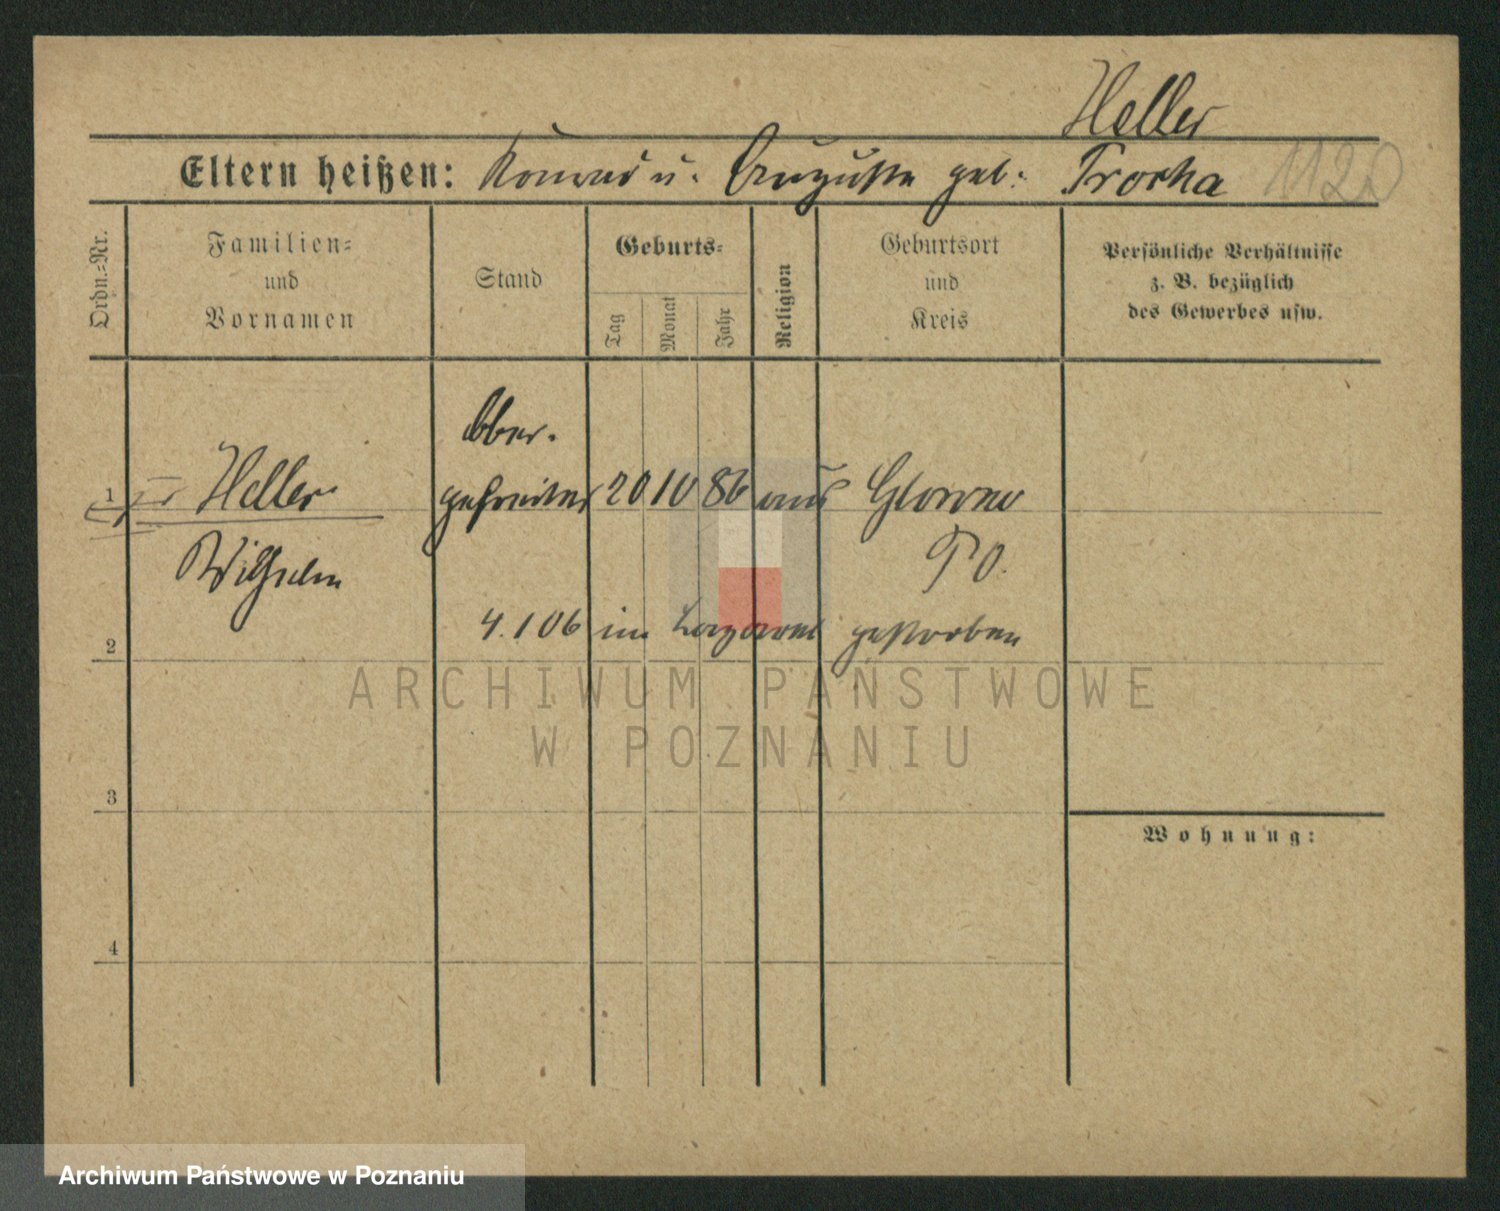 Heller
Eltern heißen: Konrad u. Auguste geb. Trocha 1120
Ordn.-Nr.
Familien-
und
Vornamen
Stand
Geburts-
Tag
Monat
Jahr
Religion
Geburtsort
und
Kreis
Persönliche Verhältnisse
z. B. bezüglich
des Gewerbes usw.
Ober-
1 Heller gefreiter 20 10 86 Glowno
Wilhelm PO.
4.1 06 im Lazaret gestorben
2
3
4
Wohnung:
ARCHIWUM PAŃSTWOWE
W POZNANIU
Archiwum Państwowe w Poznaniu